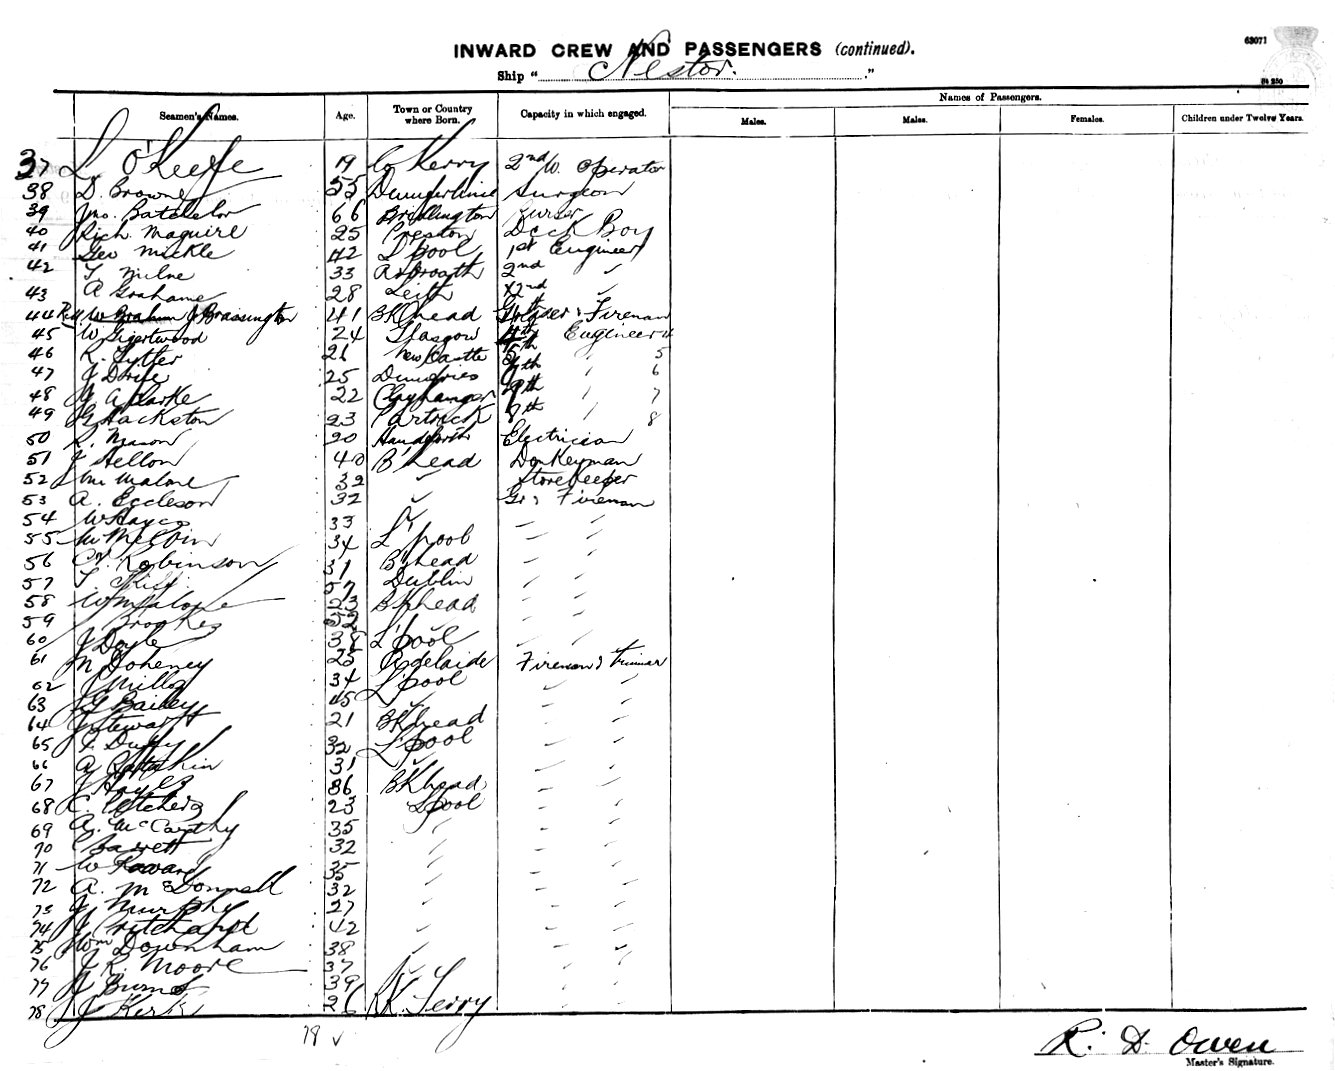 63071
INWARD CREW AND PASSENGERS (continued).
Ship " Nestor. "
Names of Passengers.
Seamen's Names. Age. Town or Country where Born. Capacity in which engaged. Males. Males. Females. Children under Twelve Years.
37 L O'Keefe 19 Co Kerry 2nd W. Operator
38 D. Browne 55 Dumferline Surgeon
39 Jno. Batchelor 66 Bridlington Purser
40 Rich Maguire 25 Preston Deck Boy
41 Geo Mickle 42 L'pool 1st Engineer
42 T. Milne 33 Arbroath 2nd "
43 A Grahame 28 Leith 2nd "
44 J Brassington 41 BKhead Greaser & Fireman
45 W 24 Glasgow Engineer 4
46 R. 21 New Castle " 5
47 J 25 Dumfries " 6
48 A Clarke 22 Clayhanger " 7
49 G Hackston 23 Partrick 7th " 8
50 R. Mason 20 Handforth Electrician
51 J Hellon 40 B'head Donkeyman
52 Wm Malone 32 " Storekeeper
53 A. Eccleson 32 " Gr & Fireman
54 W Hayes 33 " " "
55 W Melvin 34 L'pool " "
56 Robinson 31 B'head " "
57 T. 57 Dublin " "
58 W Malone 23 BKhead " "
59 Brookes 52 " " "
60 J Doyle 38 L'pool " "
61 M Doheney 25 Adelaide Fireman & trimmer
62 J Mills 34 L'pool " "
63 G Bailey 45 " " "
64 J Stewart 21 BKhead " "
65 F. Duffy 32 L'pool " "
66 A 31 " " "
67 J Hayes 36 BKhead " "
68 C. Fletcher 23 Lpool " "
69 A. McCarthy 35 " " "
70 Barrett 32 " " "
71 W 35 " " "
72 A. McDonnell 32 " " "
73 J Murphy 27 " " "
74 J Pritchard 42 " " "
75 Wm Downham 38 " " "
76 J R. Moore 37 " " "
77 J Burns 39 " " "
78 J Kerk 26 RK. Ferry " "
78 ✓
R. D. Owen
Master's Signature.